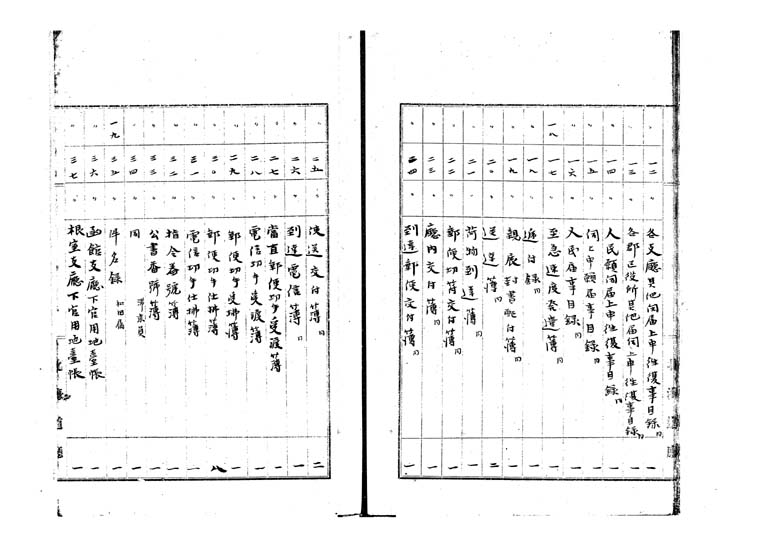 〃 一二 〃 各支廳其他伺届上申往復事目録 〃 一
〃 一三 〃 各郡区役所其他届伺上申往復事目録 〃 一
〃 一四 〃 人民願伺届上申往復事目録 〃 一
〃 一五 〃 伺上申願届事目録 〃 一
〃 一六 〃 人民届事目録 〃 一
一八 一七 〃 至急速度発遣簿 〃 一
〃 一八 〃 返付録 〃 一
〃 一九 〃 親展封書配付簿 〃 一
〃 二〇 〃 逓送簿 〃 二
〃 二一 〃 荷物到達簿 〃 一
〃 二二 〃 郵便切符交付簿 〃 一
〃 二三 〃 廳内交付簿 〃 一
〃 二四 〃 到達郵便交付簿 〃 一
〃 二五 〃 逓送交付簿 〃 二
〃 二六 〃 到達電信簿 〃 一
〃 二七 〃 當直郵便切手受渡簿 一
〃 二八 〃 電信切手受渡簿 一
〃 二九 〃 郵便切手受拂簿 一
〃 三〇 〃 郵便切手仕拂簿 八
〃 三一 〃 電信切手仕拂簿 一
〃 三二 〃 指令番號簿 一
〃 三三 〃 公書番號簿 一
〃 三四 〃 同 一
一九 三五 〃 件名録 一
〃 三六 〃 函館支廳下官用地臺帳 一
〃 三七 〃 根室支廳下官用地臺帳 一